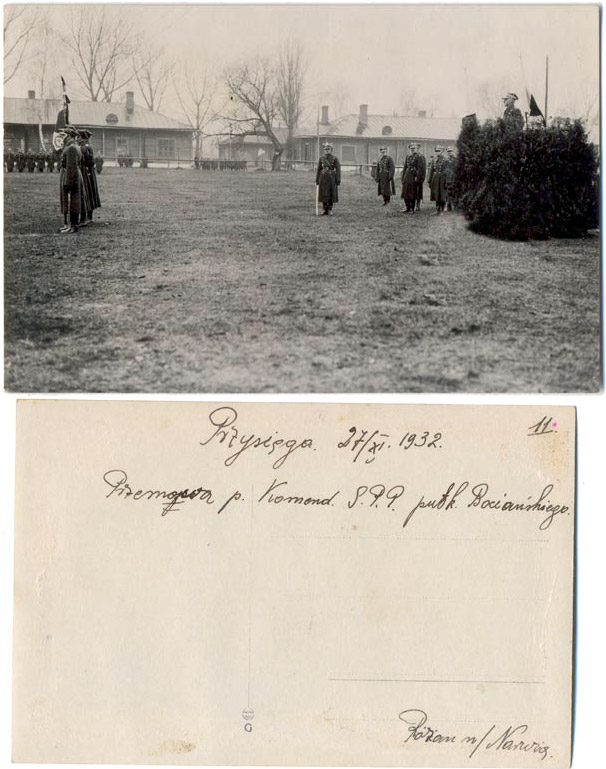 Przysięga. 27/XI. 1932.
11.
Przemowa p. Komend. S.P.P. pułk. Bociańskiego.
G
Różan n/Narwią.